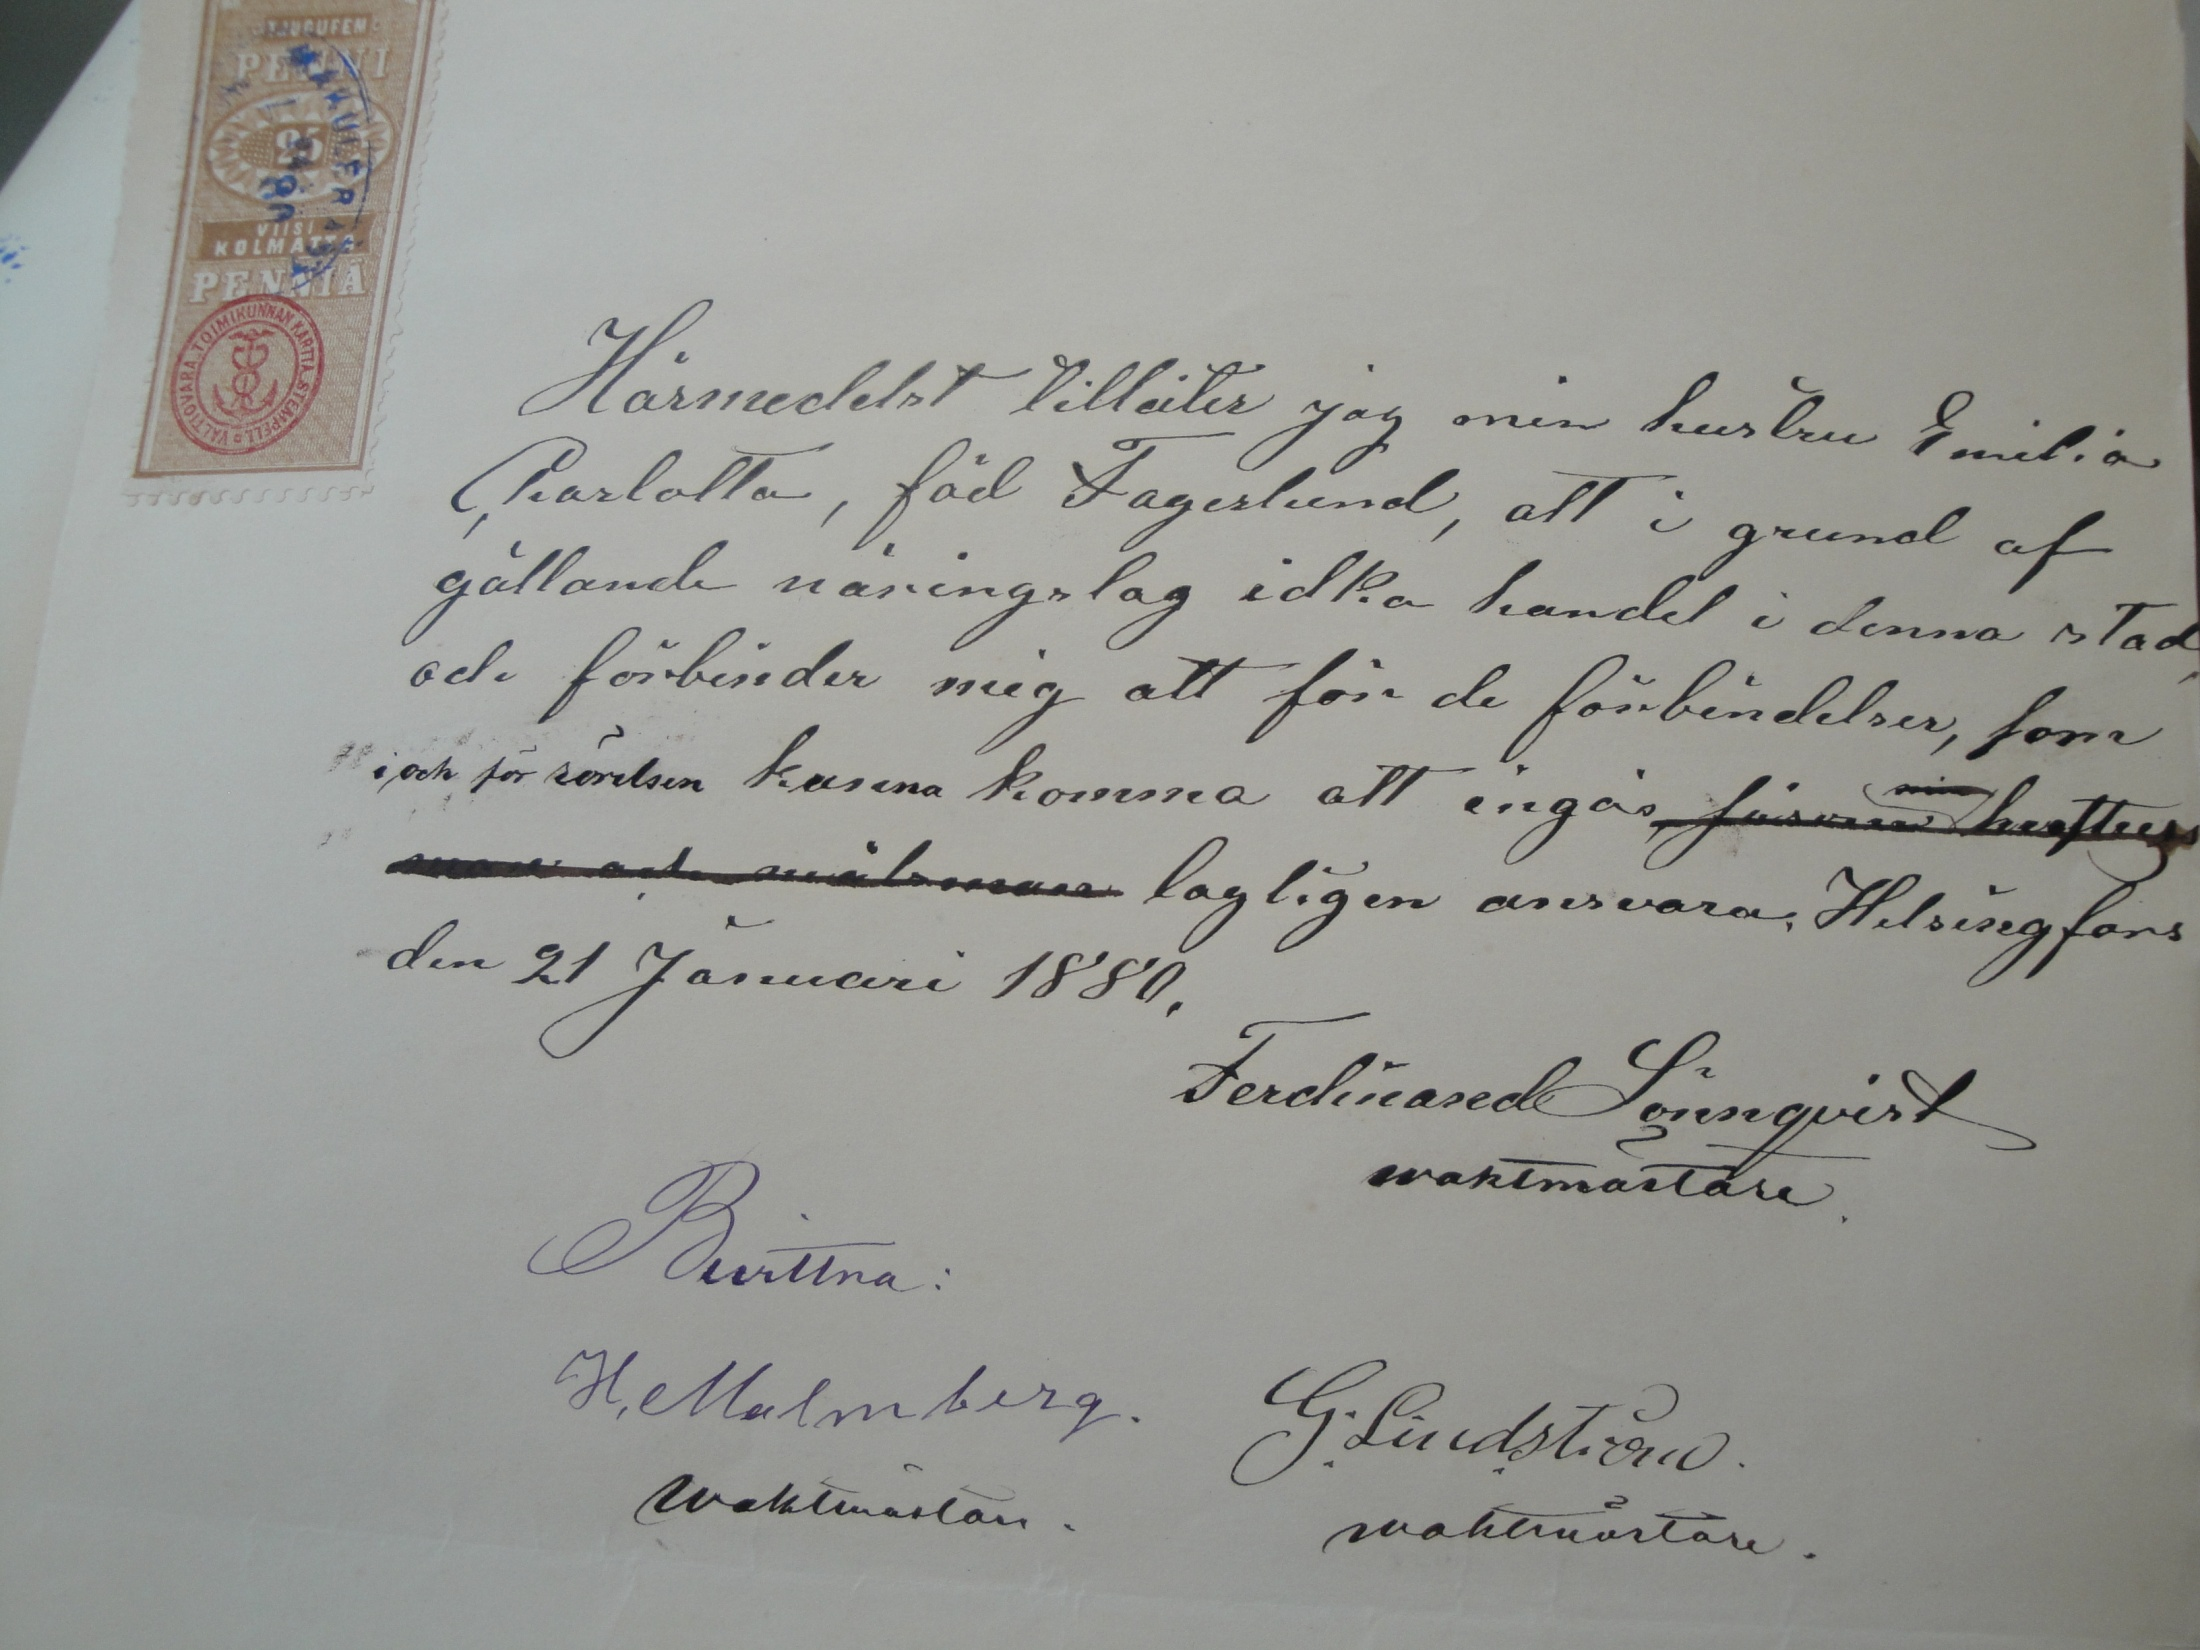 TJUGUFEM
PENNI
25
VIISI
KOLMATTA
PENNIÄ
VALTIOVARA-TOIMIKUNNAN KARTTA-STEMPELI
Härmedelst tillåter jag min hustru Emilia
Charlotta, föd Fagerlund, att i grund af
gällande näringslag idka handel i denna stad,
och förbinder mig att för de förbindelser, som
i och för rörelsen kunna komma att ingås, såsom min hustrus
man och målsman lagligen ansvara. Helsingfors
den 21 Januari 1880.
Ferdinand Lönnqvist
waktmästare.
Bevittna:
H. Malmberg. G. Lindström.
Waktmästare. waktmästare.